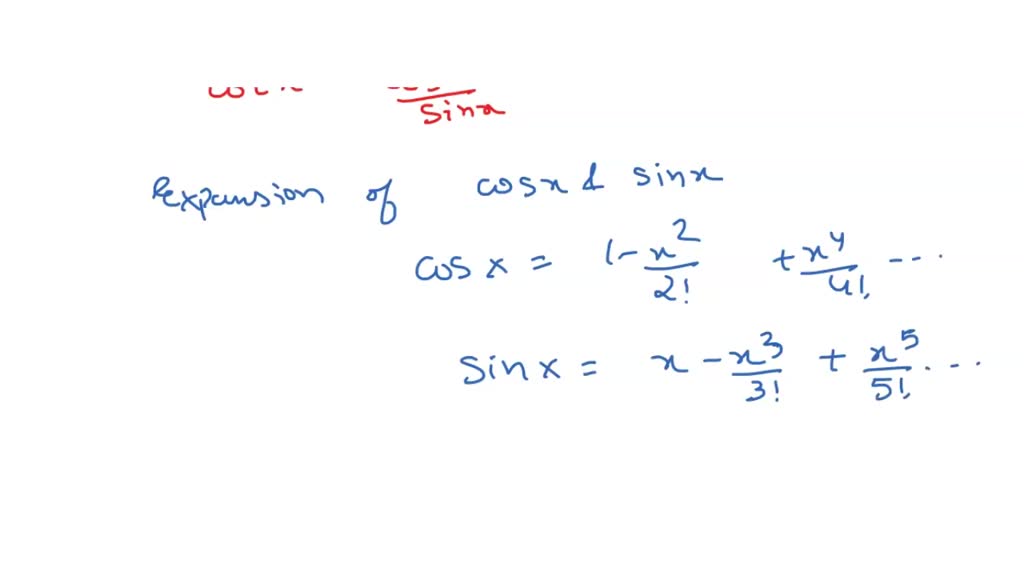 sinx
Expansion of cosx & sinx
cos x = 1 - x²/2! + x⁴/4! ---.
sin x = x - x³/3! + x⁵/5! .---